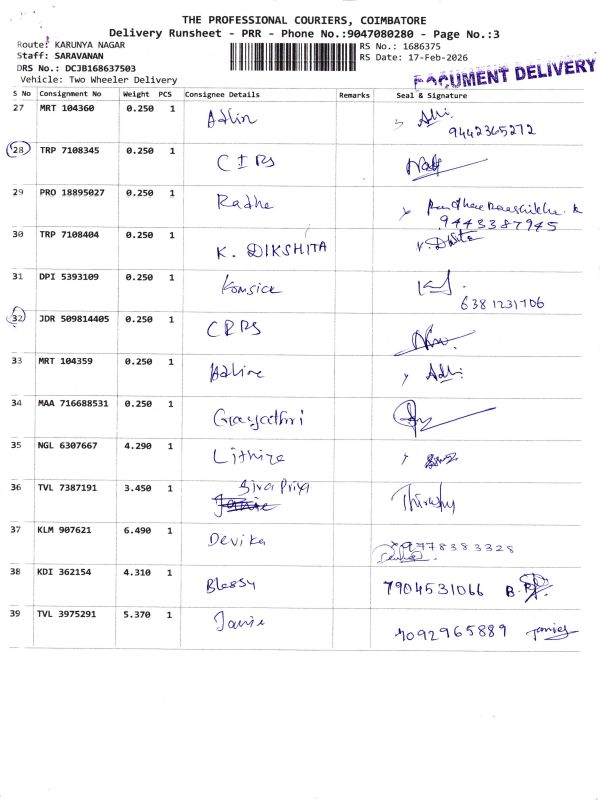 THE PROFESSIONAL COURIERS, COIMBATORE
Delivery Runsheet - PRR - Phone No.:9047080280 - Page No.:3
Route: KARUNYA NAGAR
RS No.: 1686375
Staff: SARAVANAN
RS Date: 17-Feb-2026
DRS No.: DCJB168637503
Vehicle: Two Wheeler Delivery
DOCUMENT DELIVERY
S No Consignment No Weight PCS Consignee Details Remarks Seal & Signature
27 MRT 104360 0.250 1 Adlin
9442365272
28 TRP 7108345 0.250 1
29 PRO 18895027 0.250 1 Radhe
9443387945
30 TRP 7108404 0.250 1 K. DIKSHITA
31 DPI 5393109 0.250 1
6381231706
32 JDR 509814405 0.250 1
33 MRT 104359 0.250 1 Adline
34 MAA 716688531 0.250 1 Gayathri
35 NGL 6307667 4.290 1
36 TVL 7387191 3.450 1 Siva Priya
37 KLM 907621 6.490 1 Devika
9778383328
38 KDI 362154 4.310 1 Blessy 7904531066
39 TVL 3975291 5.370 1 Janie 7092965889